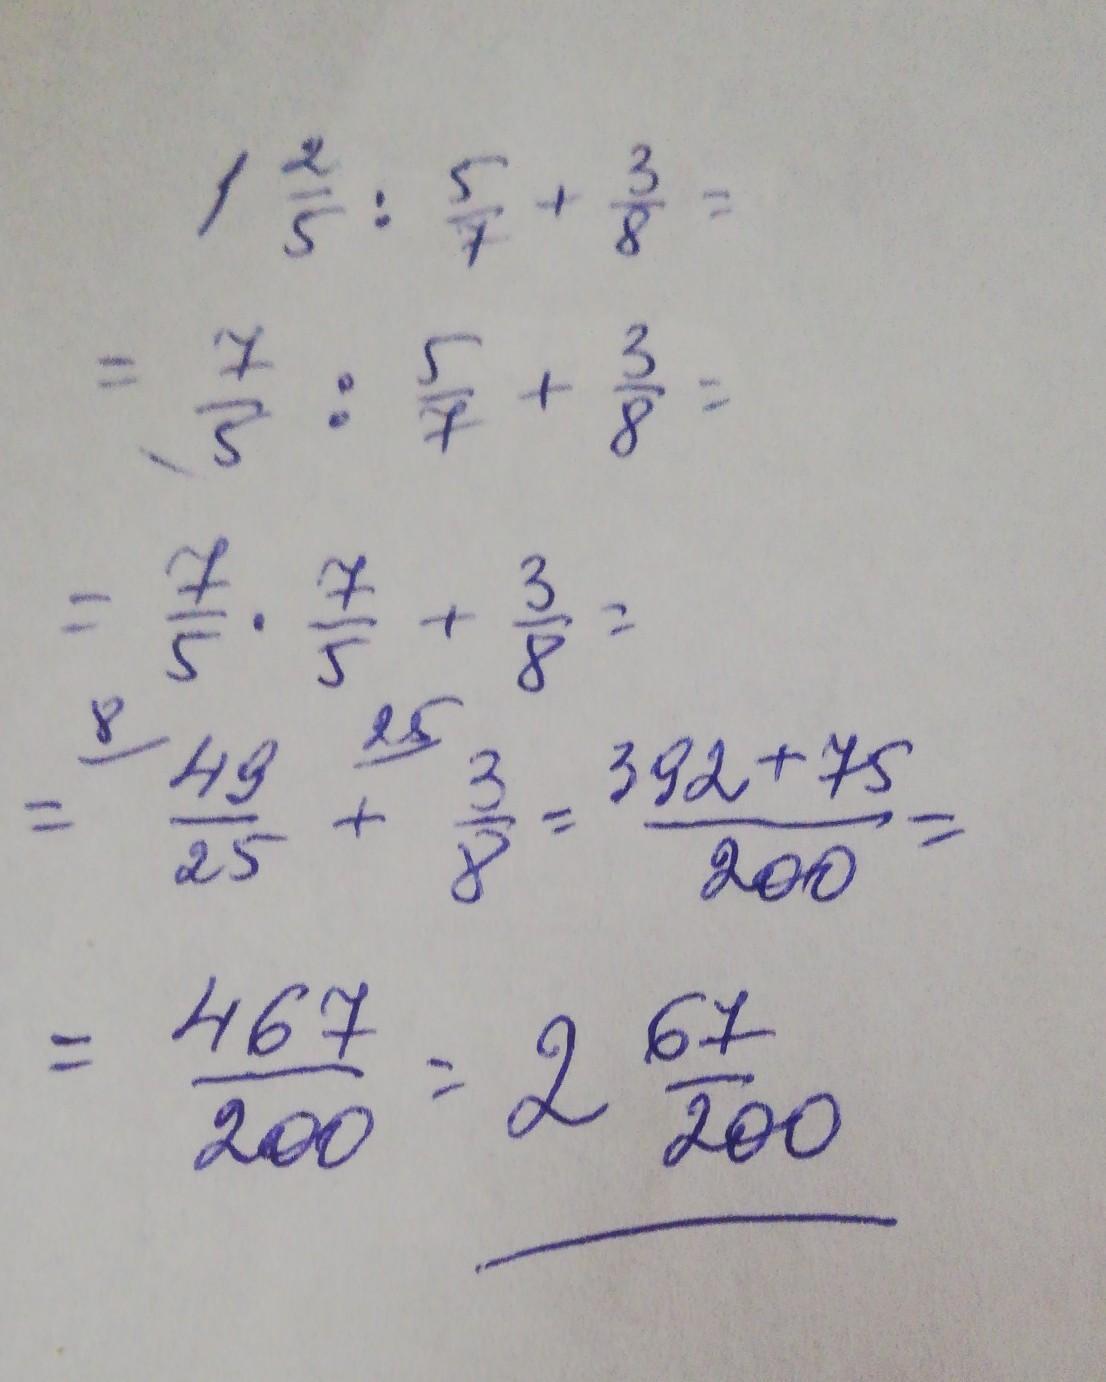 1 2/5 : 5/7 + 3/8 =
= 7/5 : 5/7 + 3/8 =
= 7/5 · 7/5 + 3/8 =
8 25
= 49/25 + 3/8 = 392+75/200 =
= 467/200 = 2 67/200